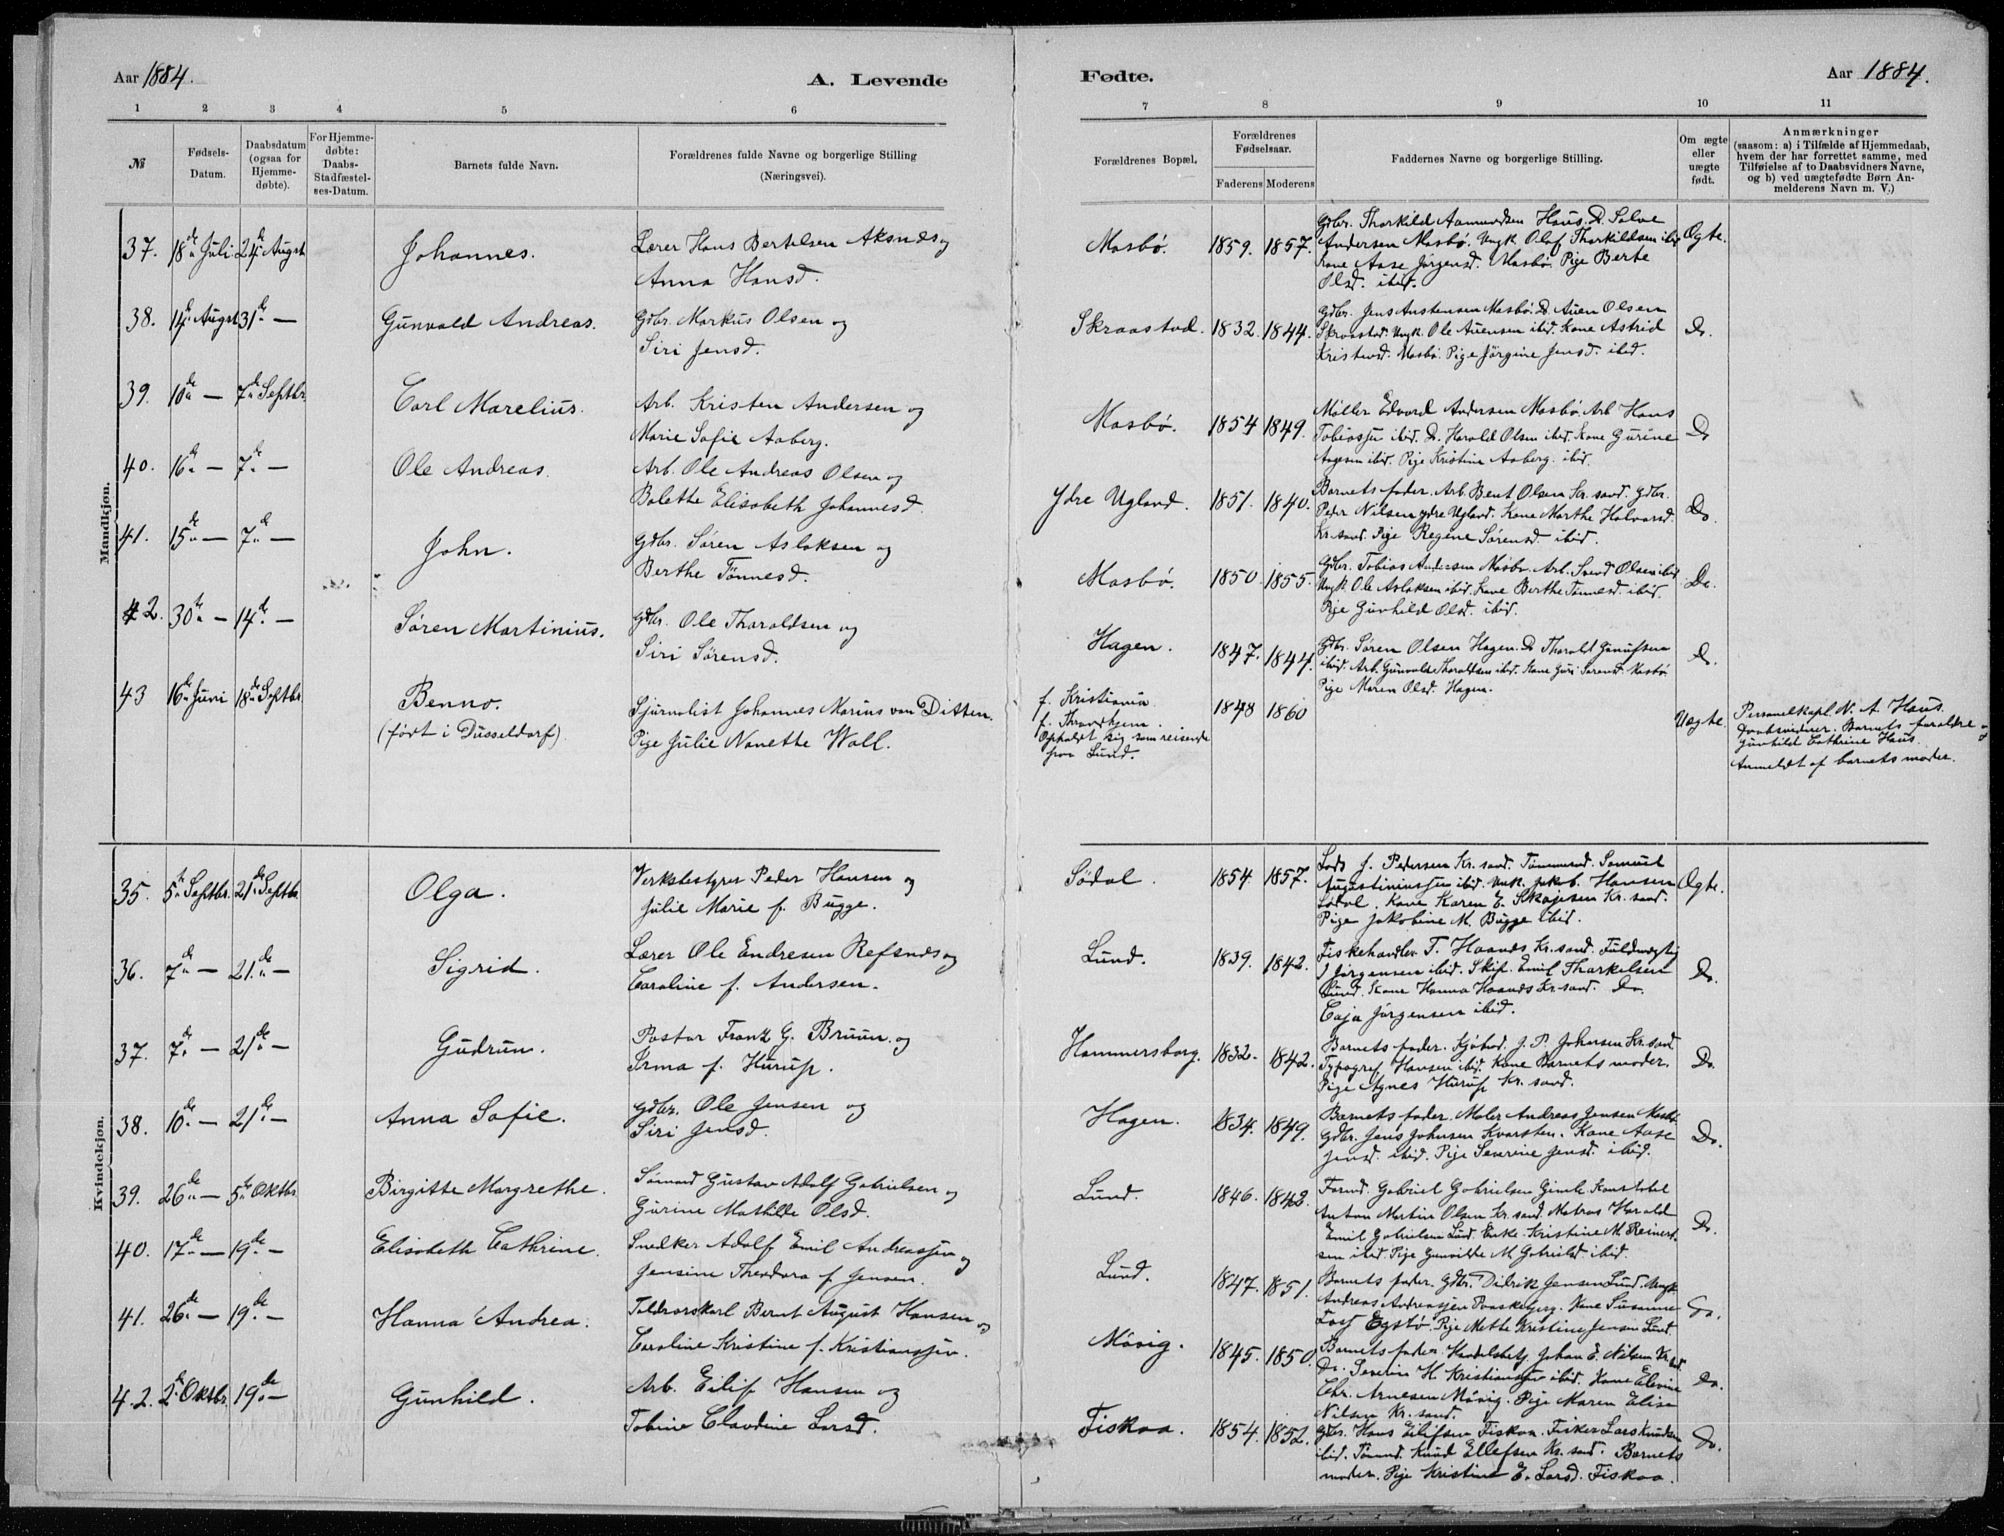 Aar 1884.
A. Levende
1 2 3 4 5 6
№
Fødsels-Datum.
Daabsdatum (ogsaa for Hjemmedøbte).
For Hjemmedøbte: Daabs-Stadfæstelses-Datum.
Barnets fulde Navn.
Forældrenes fulde Navne og borgerlige Stilling (Næringsvei).
Mandkjøn.
37. 18de Juli 24de Augst Johannes. Lærer Hans Bertelsen Aksnæs og
Anna Hansd.
38. 14de Augst 31de — Gunvald Andreas. Gdbr. Markus Olsen og
Siri Jensd.
39. 10de — 7de Septbr. Carl Marelius. Arb. Kristen Andersen og
Marie Sofie Aaberg.
40. 16de — 7de — Ole Andreas. Arb. Ole Andreas Olsen og
Bolette Elisabeth Johannesd.
41. 15de — 7de — John. Gdbr. Søren Aslaksen og
Berthe Tønnesd.
42. 30te — 14de — Søren Martinius. Gdbr. Ole Tharaldsen og
Siri Sørensd.
43 16de Juni 18de Septbr. Benno.
(født i Düsseldorf)
Sjurnalist Johannes Marius van Ditten.
Pige Julie Nanette Wall.
Kvindekjøn.
35. 5te Septbr. 21de Septbr. Olga. Verksbestyrer Peder Hansen og
Julie Marie f. Bugge.
36. 7de — 21de — Sigrid. Lærer Ole Endresen Refsnæs og
Caroline f. Andersen.
37. 7de — 21de — Gudrun. Pastor Frantz G. Bruun og
Irma f. Hurup.
38. 10de — 21de — Anna Sofie. Gdbr. Ole Jensen og
Siri Jensd.
39. 26de — 5te Oktbr. Birgitte Margrethe. Sømand Gustav Adolf Gabrielsen og
Gurine Mathilde Olsd.
40. 17de — 19de — Elisabeth Cathrine. Snedker Adolf Emil Andreassen og
Jensine Theodora f. Jensen.
41. 26de — 19de — Hanna Andrea. Toldrorskarl Bernt August Hansen og
Caroline Kristine f. Kristianssen.
42. 2de Oktbr. 19de — Gunhild. Arb. Eilif Hansen og
Tobine Claudine Larsd.
Fødte.
Aar 1884.
7 8 9 10 11
Forældrenes Bopæl.
Forældrenes Fødselsaar.
Faderens Moderens
Faddernes Navne og borgerlige Stilling.
Om ægte eller uægte født.
Anmærkninger
(saasom: a) i Tilfælde af Hjemmedaab,
hvem der har forrettet samme, med
Tilføielse af to Daabsvidners Navne,
og b) ved uægtefødte Børn Anmelderens Navn m. V.)
Mosbø. 1859. 1857. Gdbr. Tharkild Aamundsen Haus. Do. Salve
Andersen Mosbø. Ungk. Olaf Tharkildsen ibid
Kone Aase Jørgensd. Mosbø. Pige Berte
Olsd. ibid. Ægte.
Skraastad. 1832. 1844. Gdbr. Jens Austensen Mosbø. Do. Auen Olsen
Skraastad. Ungk. Ole Auensen ibid. Kone Astrid
Kristensd. Mosbø. Pige Jørgine Jensd. ibid. Do.
Mosbø. 1854 1849. Møller Edvard Andersen Mosbø. Arb. Hans
Tobiassen ibid. Do. Harald Olsen ibid. Kone Gurine
Aagesen ibid. Pige Kristine Aaberg. ibid. Do
Ydre Ugland. 1851. 1840. Barnets fader. Arb. Bent Olsen Kr.sand. Gdbr.
Peder Nilsen ydre Ugland. Kone Marthe Halvorsd.
Kr.sand. Pige Regine Sørensd. ibid. Do.
Mosbø. 1850. 1855. Gdbr. Tobias Andersen Mosbø. Arb. Svend Olsen ibid
Ungk. Ole Aslaksen ibid. Kone Berthe Tønnesd. ibid.
Pige Gunhild Olsd. ibid. Do.
Hagen. 1847. 1844. Gdbr. Søren Olsen Hagen. Do Tharald Gunufsen
ibid. Arb. Gunvald Tharaldsen ibid. Kone Guri Sørensd. Mosbø
Pige Maren Olsd. Hagen. Do.
f. Kristiania
f. Throndhjem.
Opholdt sig som reisende
paa Lund.
1848 1860 Uægte. Personelkapl. N. A. Haus.
Daabsvidner. Barnets forældre og
Gunhild Cathrine Haus.
Anmeldt af barnets moder.
Sødal. 1854. 1857. Lods J. Pedersen Kr.sand. Tømmermd. Samuel
Augustiniussen ibid. Ungk. Jakob Hansen
Sødal. Kone Karen E. Skajesen Kr.sand.
Pige Jakobine M. Bugge ibid. Ægte.
Lund. 1839. 1842. Fiskehandler T. Haanæs Kr.sand. Fuldmægtig
J Jørgensen ibid. Skip. Emil Tharkelsen
Lund. Kone Hanna Haanæs Kr.sand. Do.
Caja Jørgensen ibid. Do.
Hammersborg. 1832. 1842. Barnets fader. Kjøbmd. J. P. Johnsen Kr.sand
Typograf Hansen ibid. Kone Barnets moder.
Pige Agnes Hurup Kr.sand. Do.
Hagen. 1834. 1849. Barnets fader. Maler Andreas Jensen Mosbø.
Gdbr. Jens Johnsen Kvarsten. Kone Aase
Jensd. ibid. Pige Severine Jensd. ibid. Do.
Lund. 1846. 1842. Formd. Gabriel Gabrielsen Gimle Konstabel
Anton Martin Olsen Kr.sand Matros Harald
Emil Gabrielsen Lund. Enke Kristine M. Reinert-
sen ibid. Pige Gunvilde M. Gabrielsd. ibid. Do.
Lund. 1847. 1851. Barnets fader. Gdbr. Didrik Jensen Lund. Ungk.
Andreas Andreassen Paaskebjerg. Kone Susanne
Egsbø. Pige Mette Kristine Jensen Lund. Do.
Møvig. 1845. 1850. Barnets fader. Handelsbetj. Johan E. Nilsen Kr.sand
Do. Severin H. Kristiansen ibid. Kone Elevine
Chr. Arnesen Møvig. Pige Maren Elisa
Nilsen Kr.sand. Do.
Fiskaa. 1854. 1852. Gdbr. Hans Eilifsen Fiskaa. Fisker Lars Knudsen
ibid. Tømmd. Knud Ellefsen Kr.sand. Barnets
moder. Pige Kristine E. Larsd. Fiskaa. Do.